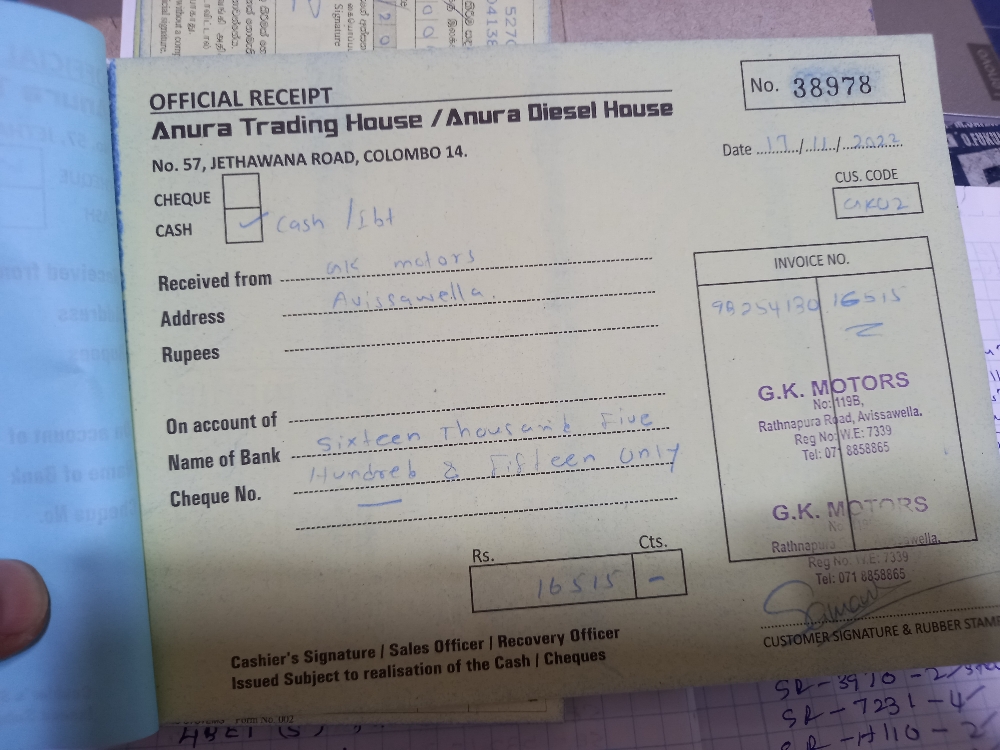 OFFICIAL RECEIPT
No. 38978
Anura Trading House / Anura Diesel House
No. 57, JETHAWANA ROAD, COLOMBO 14.
Date 17/11/2022
CUS. CODE
GK02
CHEQUE
CASH ✓ Cash / Ibt
Received from GK motors
Address Avissawella.
Rupees
INVOICE NO.
98254130 16515
On account of
Name of Bank Sixteen Thousand Five
Cheque No. Hundred & Fifteen Only
G.K. MOTORS
No: 119B,
Rathnapura Road, Avissawella.
Reg No: W.E: 7339
Tel: 071 8858865
G.K. MOTORS
Rathnapura
Reg No: W.E: 7339
Tel: 071 8858865
Rs. Cts.
16515 -
Cashier's Signature / Sales Officer / Recovery Officer
Issued Subject to realisation of the Cash / Cheques
CUSTOMER SIGNATURE & RUBBER STAMP
Form No. 002
SR-3910-2/
SR-7231-4/